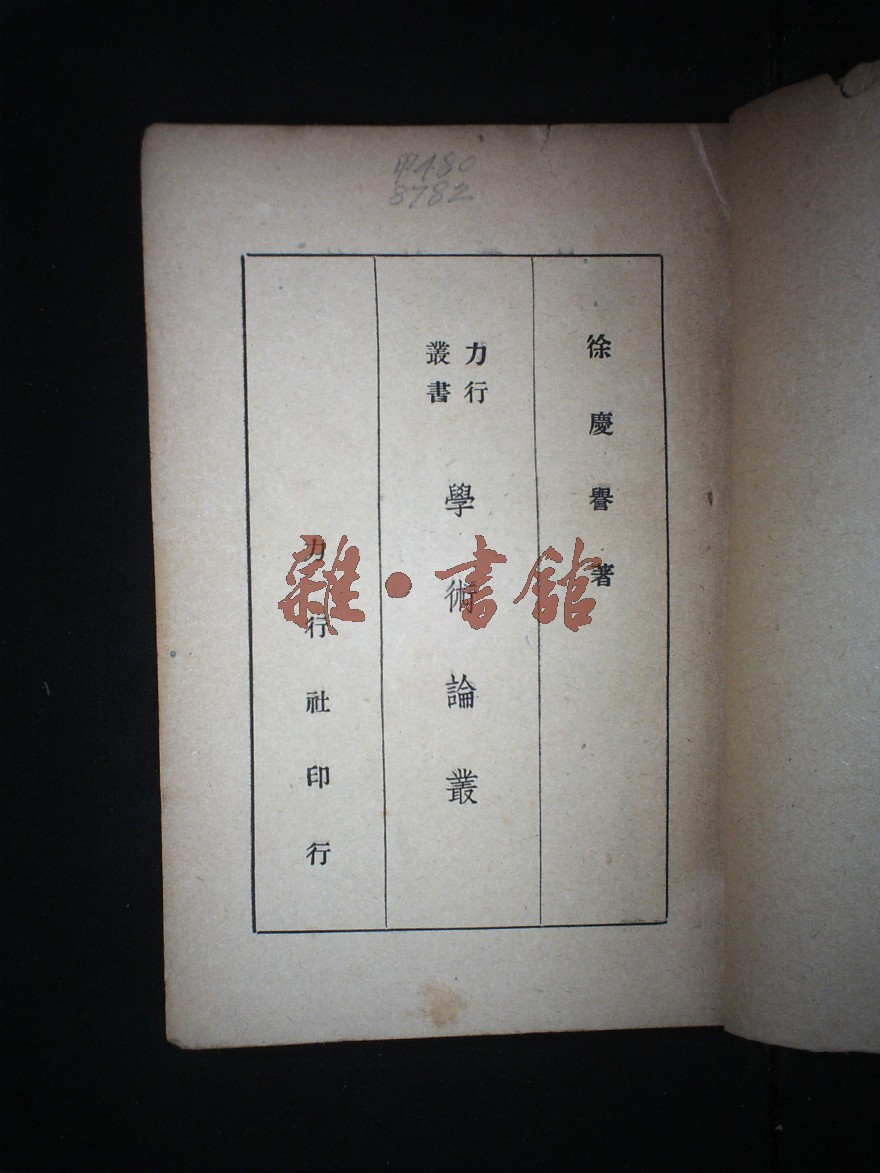 甲480
8782
徐慶譽著
力行
叢書
學術論叢
力行社印行
雜·書館